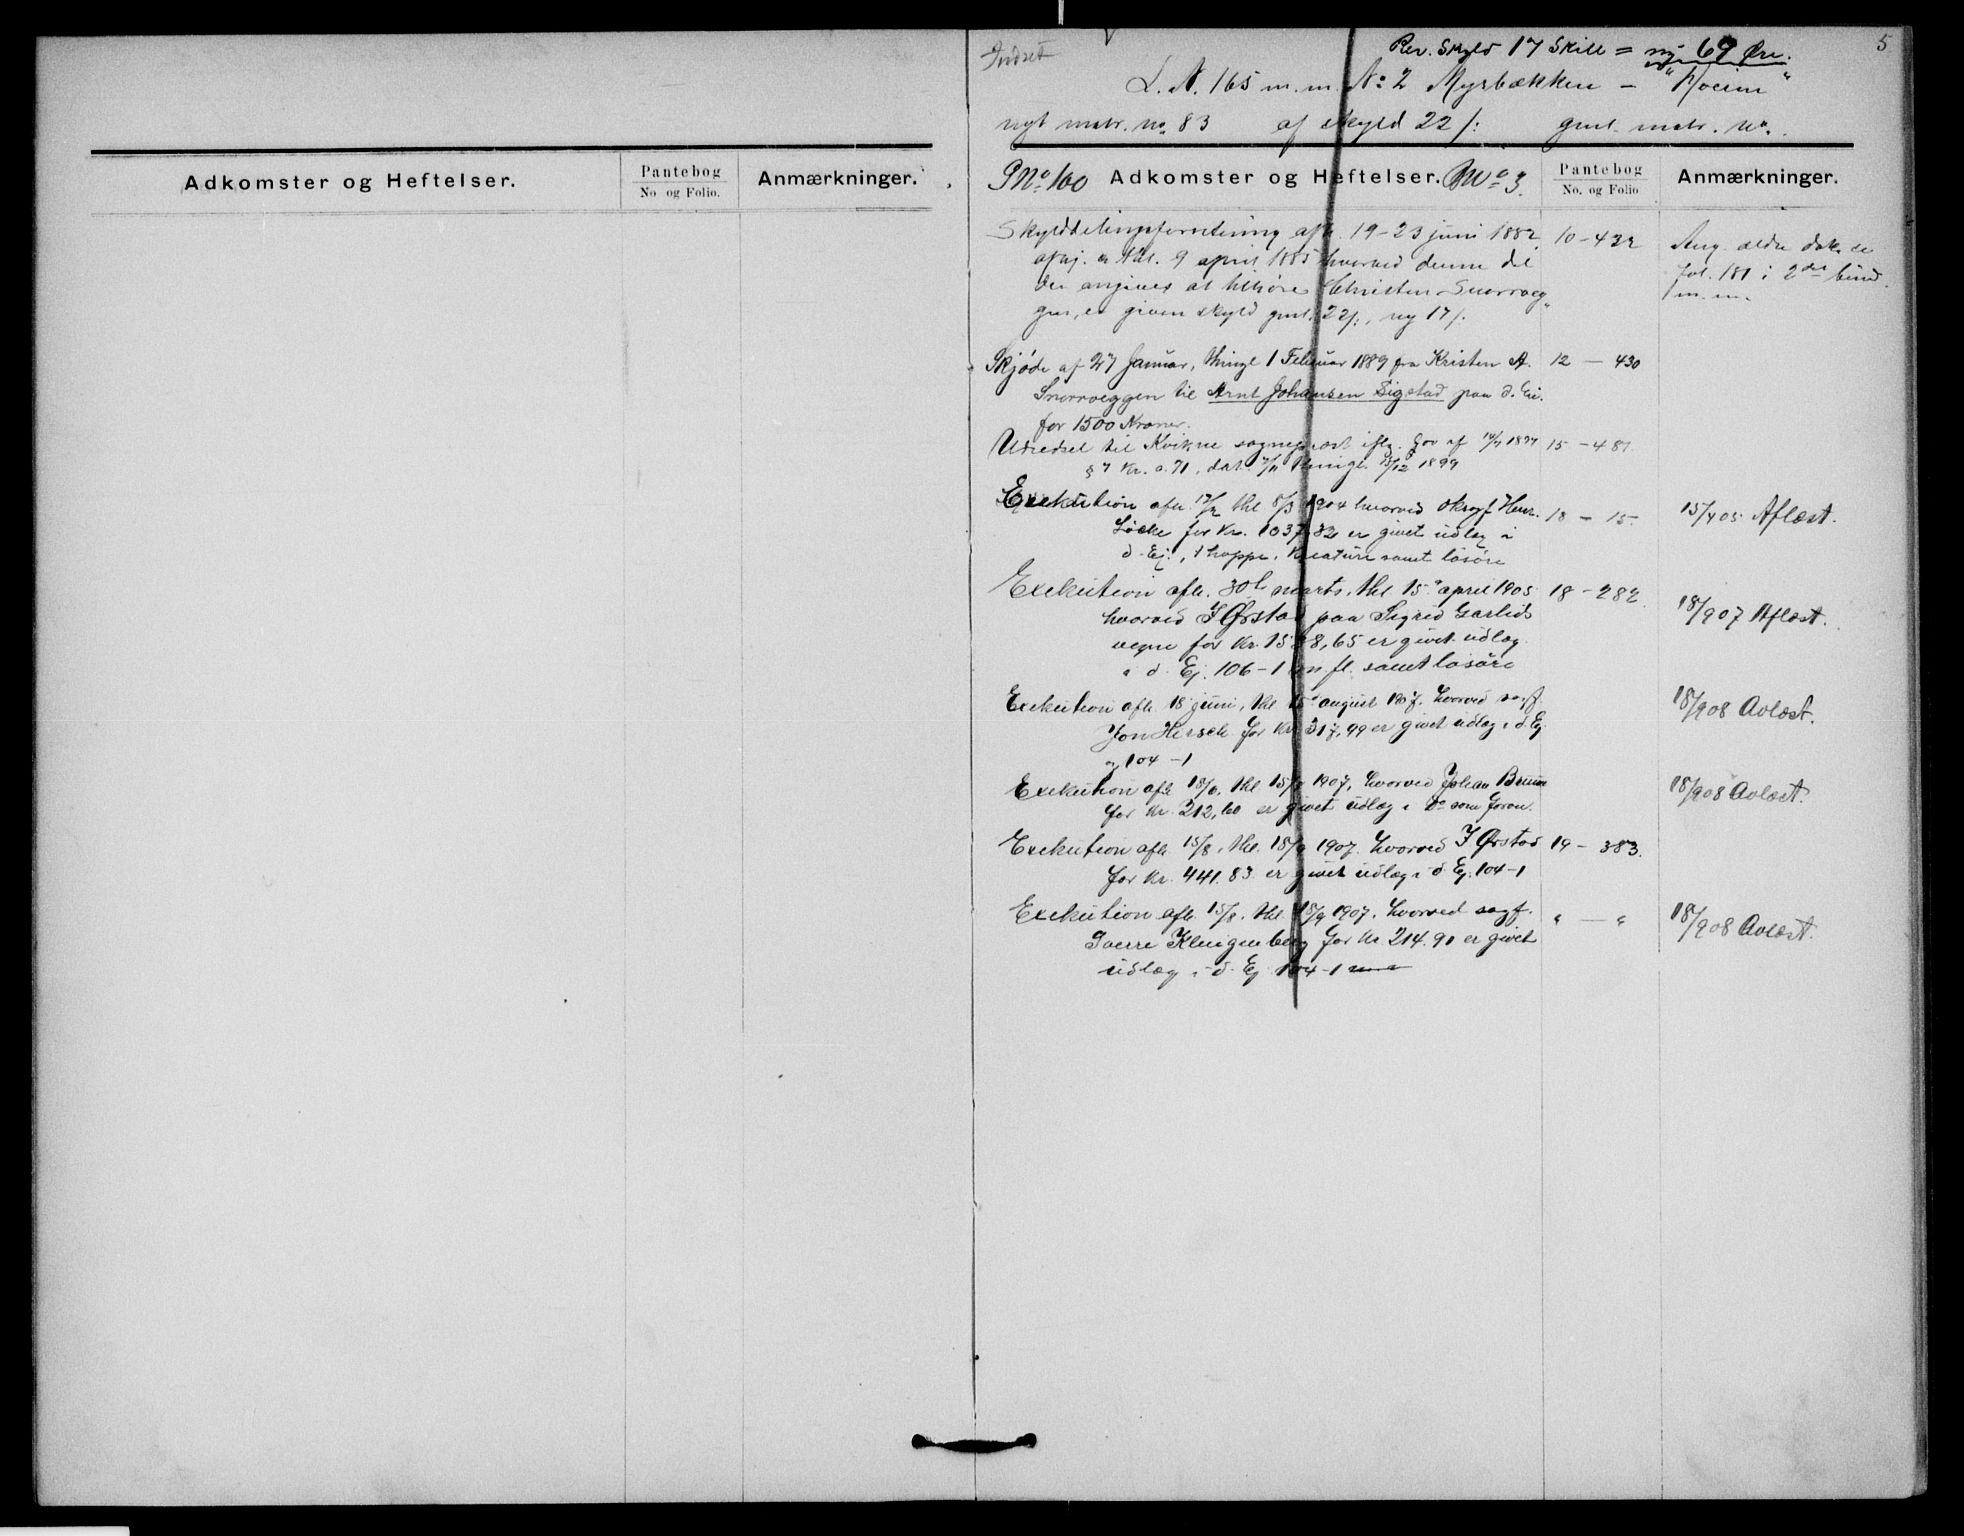 Adkomster og Heftelser.
Pantebog
No. og Folio.
Anmærkninger.
Indset
5
Rev. Skyld 17 Skill = ny 69 Øre.
L. N. 165 m. m. No 2 Myrbækken –
nyt matr. no. 83 af skyld 22 /: gml. matr. No.
No 100 Adkomster og Heftelser. No 3.
Pantebog
No. og Folio
Anmærkninger.
Skylddelingsforretning afh. 19-23 juni 1882, 10-422
9 april 1885 hvorved denne del
der angives at tilhøre Christen Snorroeg-
gen, er given skyld gml. 22/:, ny 17/.
Ang. ældre dok. se
fol. 181 i 2det bind
m. m.
Skjøde af 27 Januar, thingl 1 Februar 1889 fra Kristen A. 12 – 430
Snorroeggen til Arnt Johansen Sigstad paa d. Ei.
for 1500 Kroner.
Udredsel til Kvikne sogneprest iflg. Lov af 14/7 1894 15 – 481
§ 7 Kr. 0.71, dat. thingl. 15/12 1899
Exekution afh. 17/2 thl 8/3 1904 hvorved Henr. 18 – 15.
for Kr. 1037,82 er givet udlæg i
d. Ej., 1 hoppe, kreature samt løsøre
15/4 05 Aflæst.
Exekution afh. 30te marts, thl 15. april 1905 18 – 282.
hvorved I Ørstad paa Sigrid Garlids
vegne for kr. 1528,65 er givet udlæg
i d. Ej. 106-1 m. fl. samt løsøre
18/9 07 Aflæst.
Exekution afh 18 juni, thl 15 august 1907, hvorved sagf.
Jon Hirsch for Kr 317,99 er givet udlæg i d Ej.
og 104 – 1
18/9 08 Avlæst.
Exekution afh 18/6, thl 15/8 1907, hvorved Johan Bruun
for Kr. 212,60 er givet udlæg i Do som foran.
18/9 08 Avlæst.
Exekution afh 15/8, thl. 18/9 1907. hvorved I Ørstad 19 – 383.
for Kr. 441.83 er givet udlæg i d Ej. 104-1
Exekution afh. 15/8. thl 18/9 1907, hvorved sagf. " — "
Sverre Klingenberg for Kr 214.90 er givet
udlæg i d. Ej 104-1
18/9 08 Avlæst.